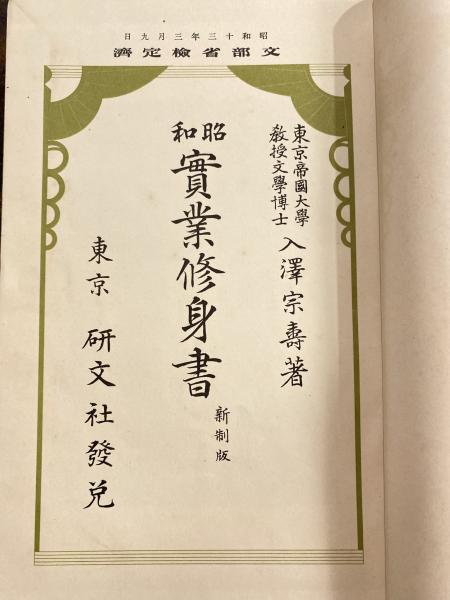 昭和十三年三月九日
文部省檢定濟
東京帝國大學
教授文學博士
入澤宗壽著
昭和
實業修身書
新制版
東京 研文社發兌